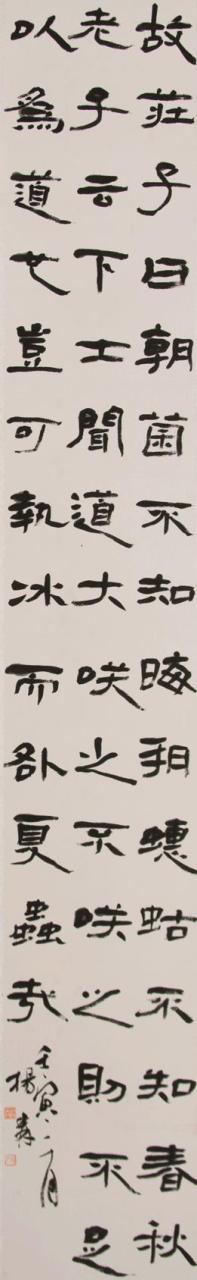 故莊子曰朝菌不知晦朔蟪蛄不知春秋
老子云下士聞道大咲之不咲之則不足
以為道也豈可執冰而咎夏蟲哉
壬寅二月
楊森